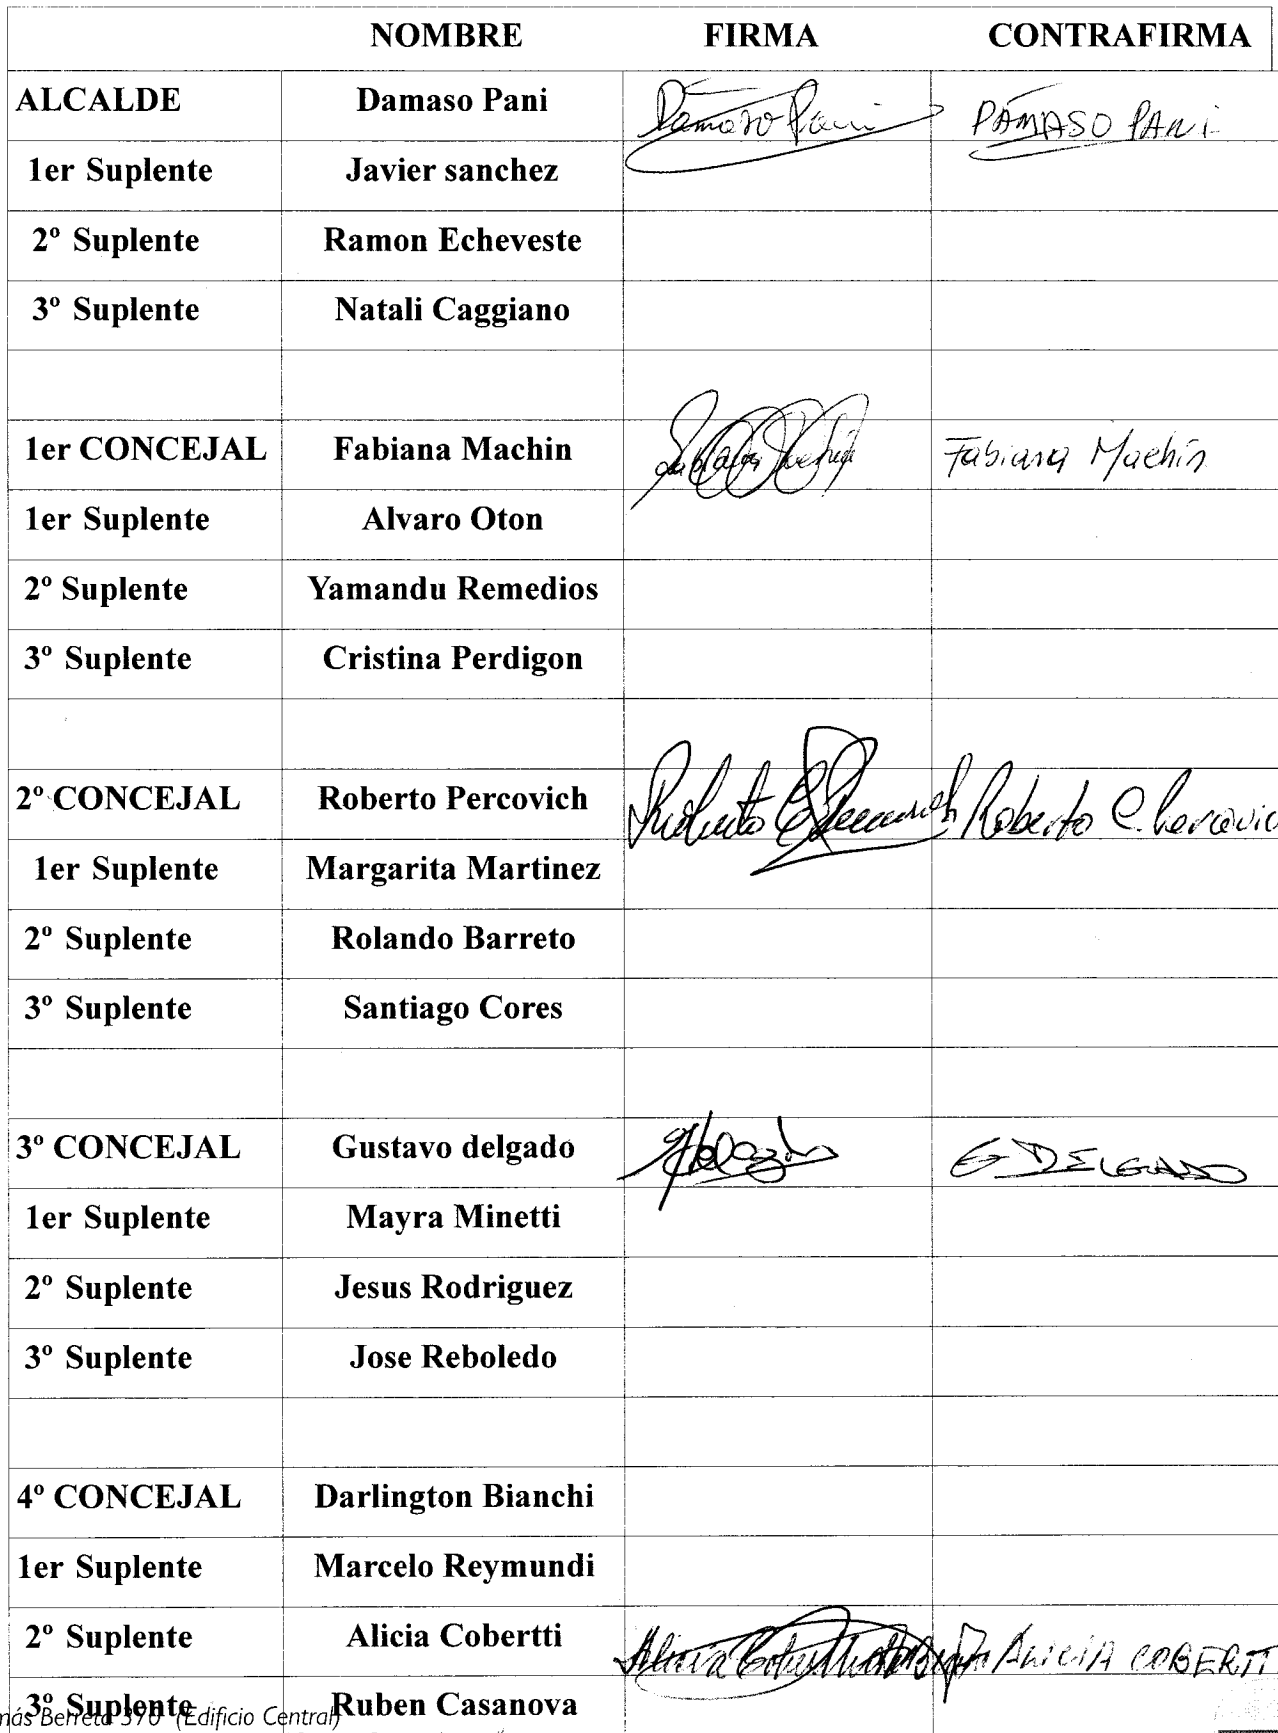 NOMBRE FIRMA CONTRAFIRMA
ALCALDE Damaso Pani Damaso Pani DAMASO PANI
1er Suplente Javier sanchez
2º Suplente Ramon Echeveste
3º Suplente Natali Caggiano
1er CONCEJAL Fabiana Machin Fabiana Machín
1er Suplente Alvaro Oton
2º Suplente Yamandu Remedios
3º Suplente Cristina Perdigon
2º CONCEJAL Roberto Percovich Roberto Roberto
1er Suplente Margarita Martinez
2º Suplente Rolando Barreto
3º Suplente Santiago Cores
3º CONCEJAL Gustavo delgado G DELGADO
1er Suplente Mayra Minetti
2º Suplente Jesus Rodriguez
3º Suplente Jose Reboledo
4º CONCEJAL Darlington Bianchi
1er Suplente Marcelo Reymundi
2º Suplente Alicia Cobertti Alicia ALICIA COBERTT
3º Suplente Ruben Casanova
nás Berreta 370 (Edificio Central)